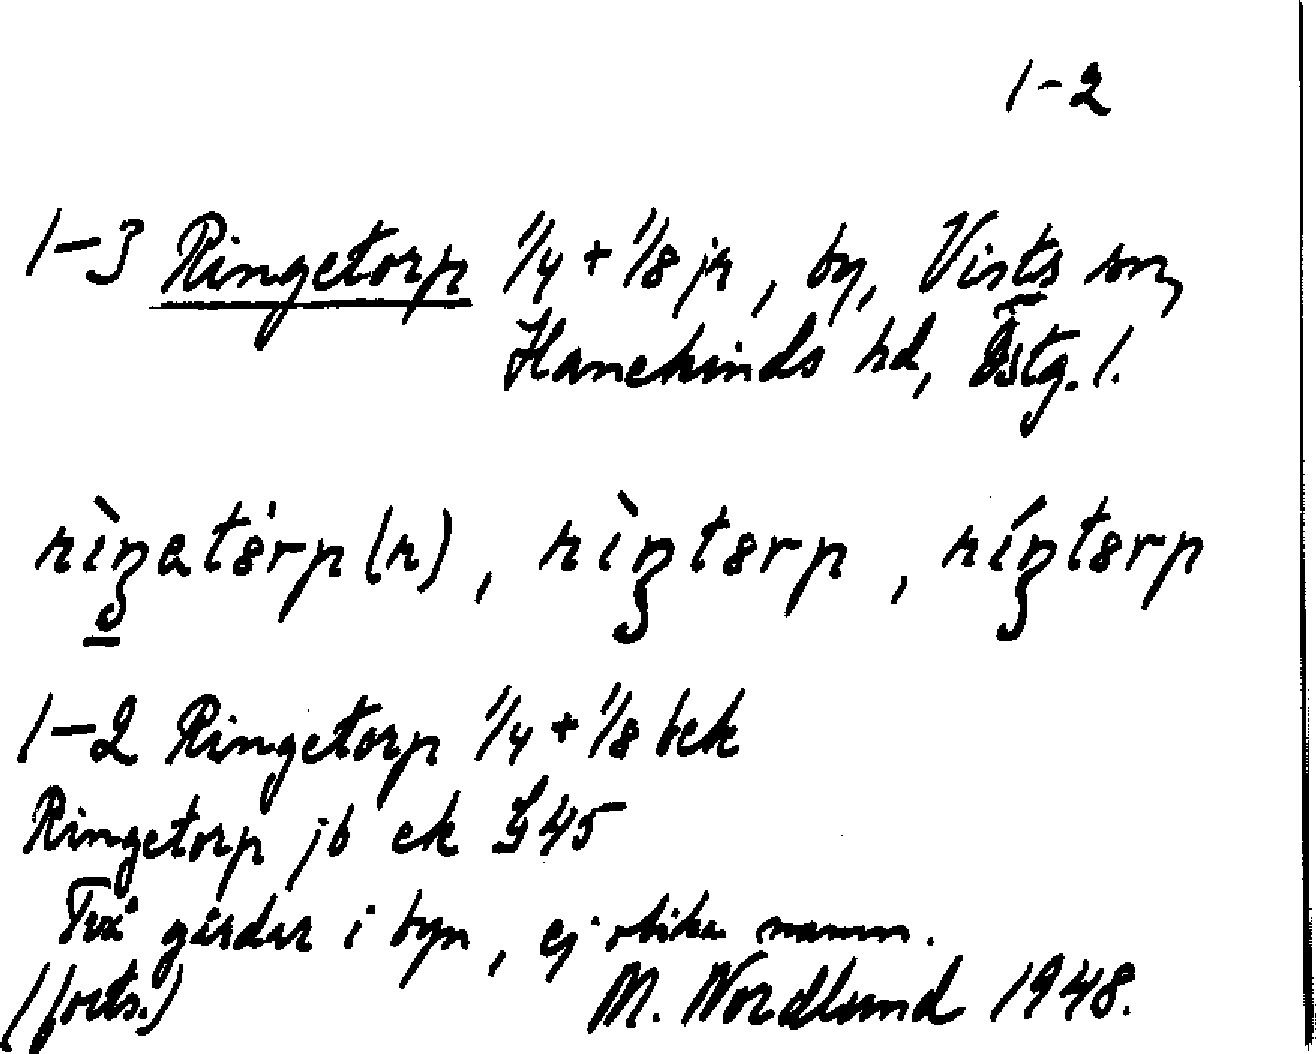 1-2
1-3 Ringetorp 1/4 + 1/8 jr, by, Vists sn,
Hanekinds hd, Östg. l.
rìŋatɵ̀rp(r), rìŋtɵrp, ríŋtɵrp
1-2 Ringetorp 1/4 + 1/8 bek
Ringetorp jb ek G45
Två gårdar i byn, ej olika namn.
(forts.) M. Nordlund 1948.